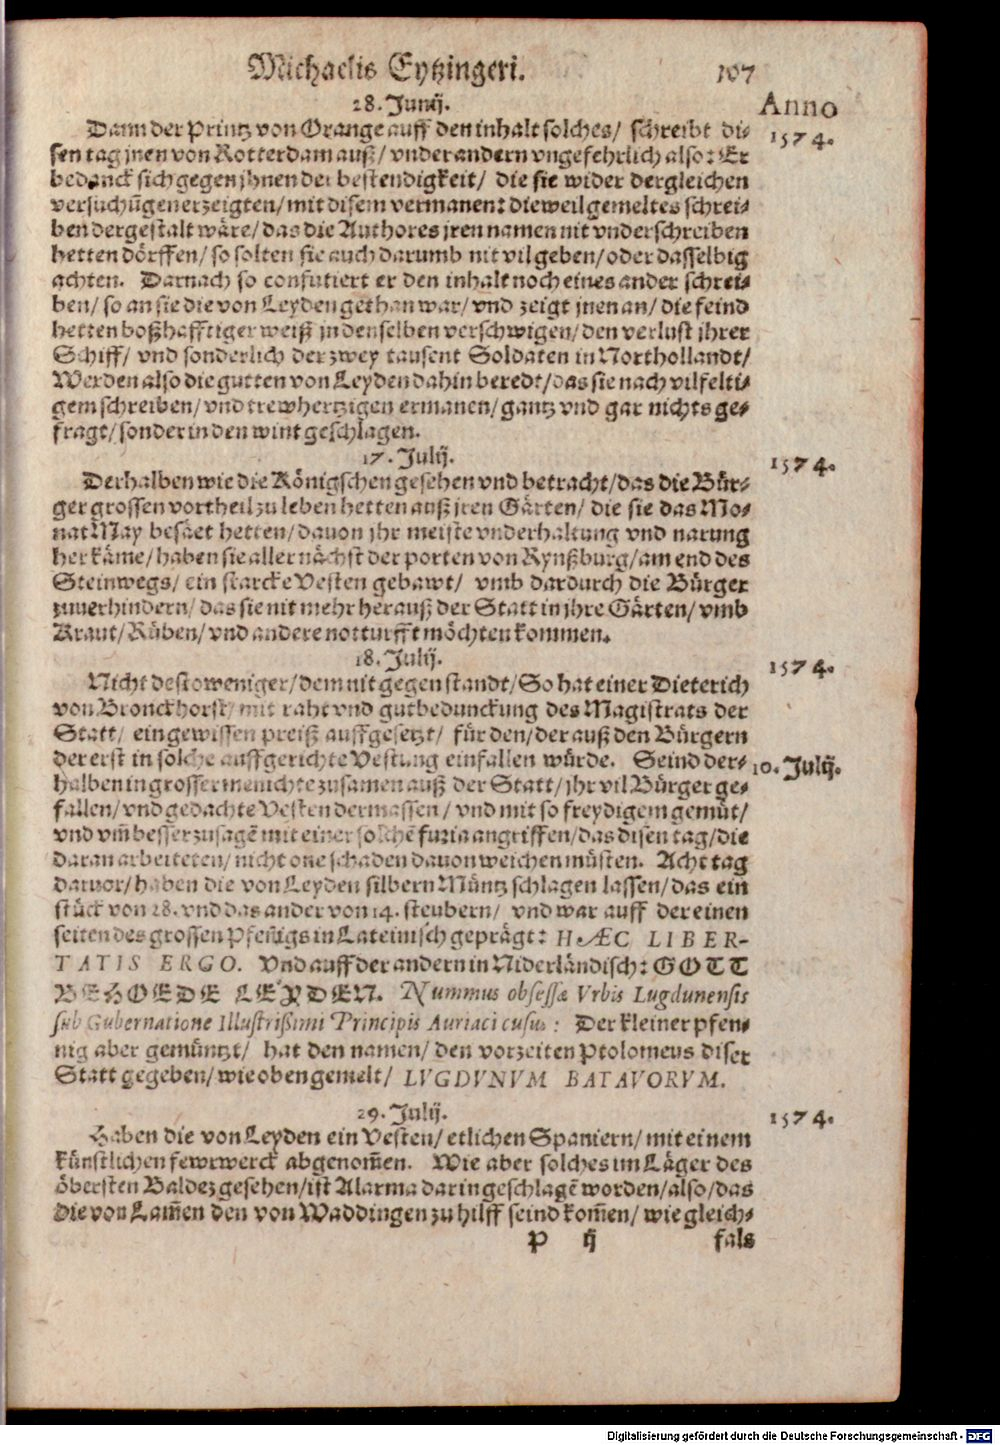 Michaelis Eytzingeri. 107
Anno
28. Junij.
Dann der Printz von Orange auff den inhalt solches/ schreibt di- 1574.
sen tag jnen von Rotterdam auß/ vnder andern vngefehrlich also: Er
bedanck sich gegen jhnen der bestendigkeit/ die sie wider dergleichen
versuchūgen erzeigten/ mit disem vermanen: dieweil gemeltes schrei-
ben dergestalt wäre/ das die Authores jren namen nit vnderschreiben
hetten dörffen/ so solten sie auch darumb nit vil geben/ oder dasselbig
achten. Darnach so confutiert er den inhalt noch eines ander schrei-
ben/ so an sie die von Leyden gethan war/ vnd zeigt jnen an/ die feind
hetten boßhafftiger weiß in denselben verschwigen/ den verlust jhrer
Schiff/ vnd sonderlich der zwey tausent Soldaten in Northollandt/
Werden also die gutten von Leyden dahin beredt/ das sie nach vilfelti-
gem schreiben/ vnd trewhertzigen ermanen/ gantz vnd gar nichts ge-
fragt/ sonder in den wint geschlagen.
17. Julij. 1574.
Derhalben wie die Königschen gesehen vnd betracht/ das die Bür-
ger grossen vortheil zu leben hetten auß jren Gärten/ die sie das Mo-
nat May besäet hetten/ dauon jhr meiste vnderhaltung vnd narung
her käme/ haben sie aller nächst der porten von Rynßburg/ am end des
Steinwegs/ ein starcke Vesten gebawt/ vmb dardurch die Bürger
zuuerhindern/ das sie nit mehr herauß der Statt in jhre Gärten/ vmb
Kraut/ Rüben/ vnd andere notturfft möchten kommen.
18. Julij. 1574.
Nicht destoweniger/ dem nit gegen standt/ So hat einer Dieterich
von Bronckhorst/ mit raht vnd gutbedunckung des Magistrats der
Statt/ ein gewissen preiß auffgesetzt/ für den/ der auß den Bürgern
der erst in solche auffgerichte Vestung einfallen würde. Seind der- 10. Julij.
halben in grosser menichte zusamen auß der Statt/ jhr vil Bürger ge-
fallen/ vnd gedachte Vesten dermassen/ vnd mit so freydigem gemüt/
vnd vm̄ besser zusagē mit einer solchē furia angriffen/ das disen tag/ die
daran arbeiteten/ nicht one schaden dauon weichen müsten. Acht tag
daruor/ haben die von Leyden silbern Müntz schlagen lassen/ das ein
stück von 28. vnd das ander von 14. steubern/ vnd war auff der einen
seiten des grossen Pfeñigs in Lateinisch geprägt: HÆC LIBER-
TATIS ERGO. Vnd auff der andern in Niderländisch: GOTT
BEHOEDE LEYDEN. Nummus obsessæ Vrbis Lugdunensis
sub Gubernatione Illustrißimi Principis Auriaci cusus: Der kleiner pfen-
nig aber gemüntzt/ hat den namen/ den vorzeiten Ptolomeus diser
Statt gegeben/ wie oben gemelt/ LVGDVNVM BATAVORVM.
29. Julij. 1574.
Haben die von Leyden ein Vesten/ etlichen Spaniern/ mit einem
künstlichen fewrwerck abgenom̄en. Wie aber solches im Läger des
öbersten Baldez gesehen/ ist Alarma darin geschlagē worden/ also/ das
die von Lam̄en den von Waddingen zu hilff seind kom̄en/ wie gleich-
P ij fals
Digitalisierung gefördert durch die Deutsche Forschungsgemeinschaft - DFG